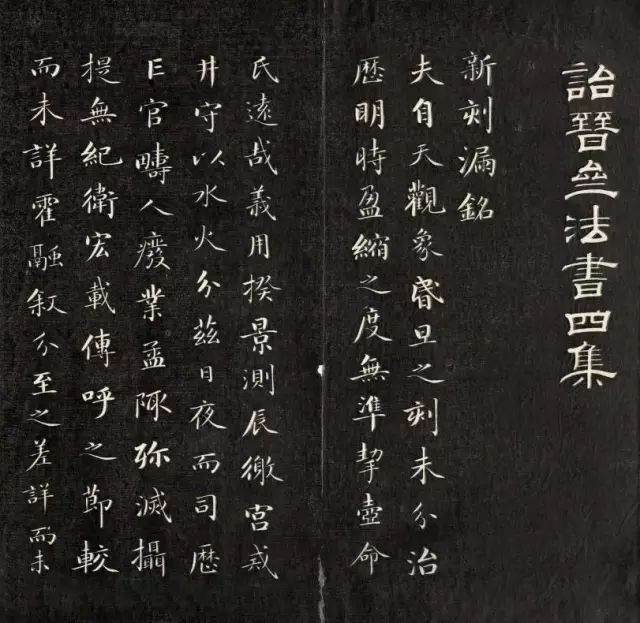 詒晉亝法書四集
新刻漏銘
夫自天觀象昬旦之刻未分治
歷明時盈縮之度無準挈壺命
氏遠哉義用揆景測辰徼宮戒
井守以水火分茲日夜而司歷
亡官疇人癈業孟陬殄滅攝
提無紀衛宏載傳呼之節較
而未詳霍融叙分至之差詳而未